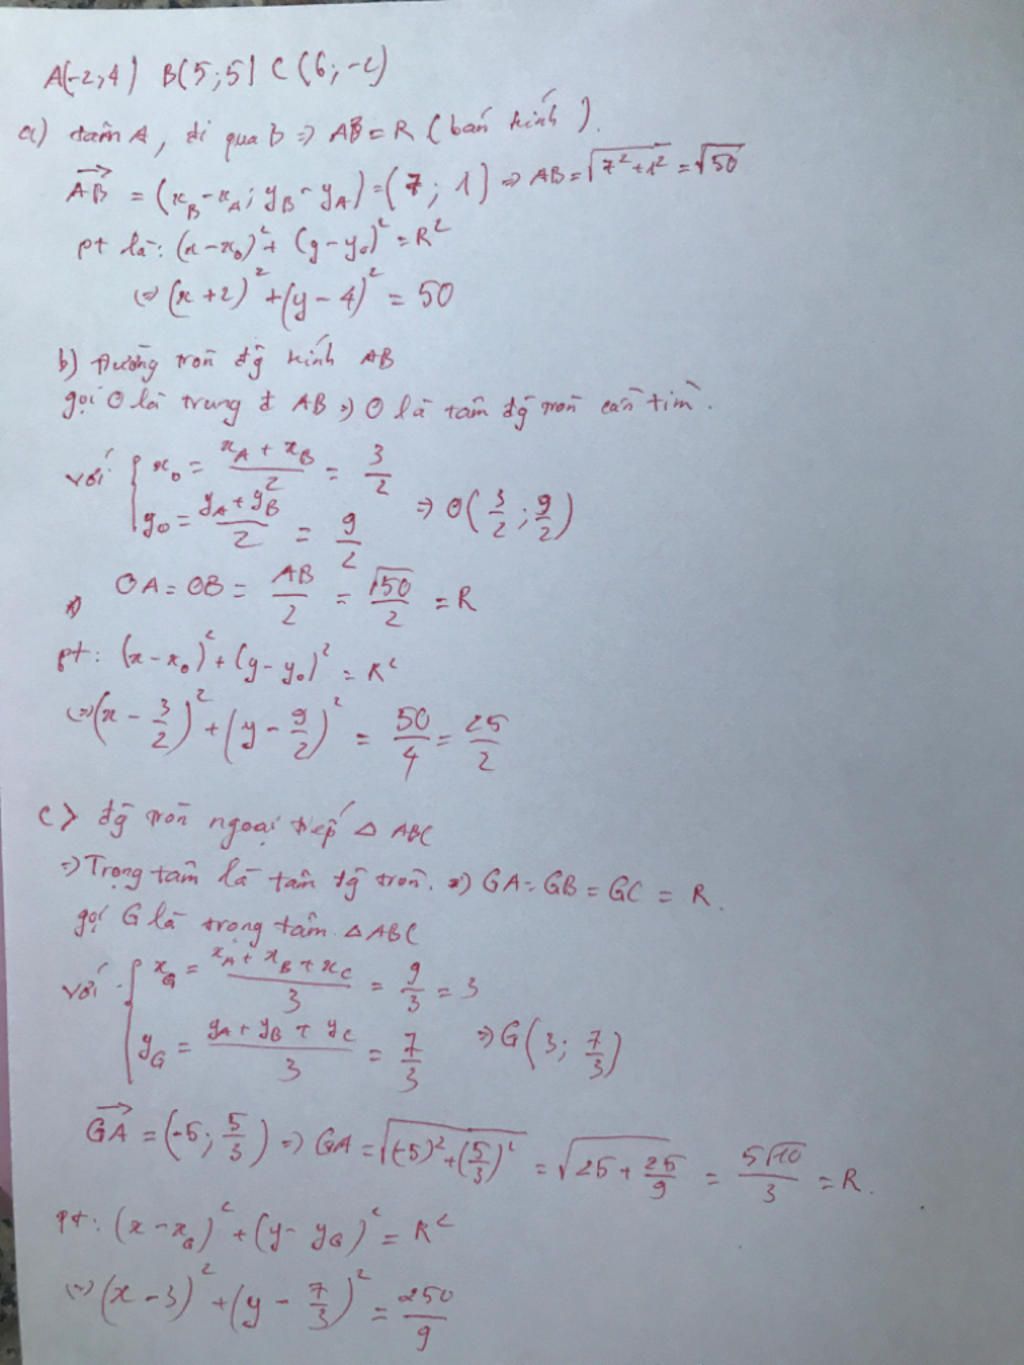 A(-2;4) B(5;5) C(6;-2)
a) tâm A, đi qua B => AB = R (bán kính).
AB = (x_B - x_A; y_B - y_A) = (7; 1) => AB = √(7² + 1²) = √50
pt là: (x - x₀)² + (y - y₀)² = R²
<=> (x + 2)² + (y - 4)² = 50
b) Đường tròn đg kính AB
gọi O là trung đ AB => O là tâm đg tròn cần tìm.
với { x_O = (x_A + x_B)/2 = 3/2
y_O = (y_A + y_B)/2 = 9/2 => O(3/2; 9/2)
OA = OB = AB/2 = √50/2 = R
pt: (x - x₀)² + (y - y₀)² = R²
<=> (x - 3/2)² + (y - 9/2)² = 50/4 = 25/2
c) đg tròn ngoại tiếp △ ABC
=> Trọng tâm là tâm đg tròn. => GA = GB = GC = R.
gọi G là trọng tâm △ABC
với { x_G = (x_A + x_B + x_C)/3 = 9/3 = 3
y_G = (y_A + y_B + y_C)/3 = 7/3 => G(3; 7/3)
GA = (-5; 5/3) => GA = √((-5)² + (5/3)²) = √(25 + 25/9) = 5√10/3 = R.
pt: (x - x_G)² + (y - y_G)² = R²
<=> (x - 3)² + (y - 7/3)² = 250/9